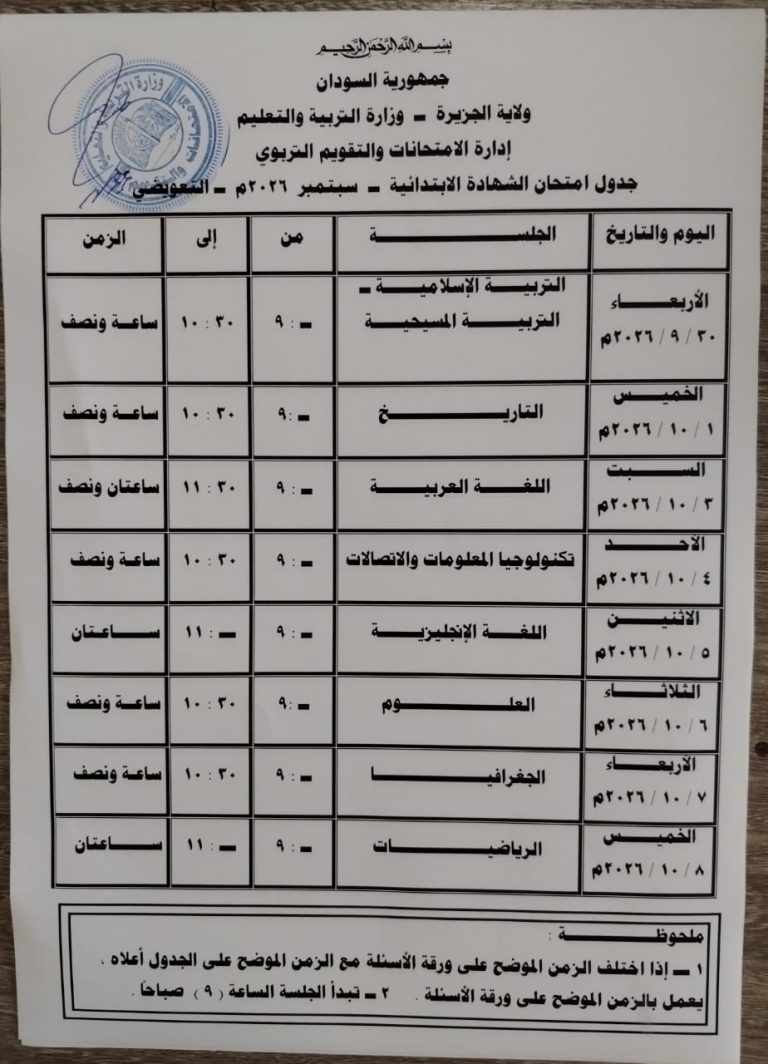 بسم الله الرحمن الرحيم
جمهورية السودان
ولاية الجزيرة – وزارة التربية والتعليم
إدارة الامتحانات والتقويم التربوي
جدول امتحان الشهادة الابتدائية – سبتمبر ٢٠٢٦م – التعويضي
اليوم والتاريخ الجلسة من إلى الزمن
الأربعاء ٣٠ / ٩ / ٢٠٢٦م التربية الإسلامية – التربية المسيحية ٩ : – ١٠ : ٣٠ ساعة ونصف
الخميس ١ / ١٠ / ٢٠٢٦م التاريخ ٩ : – ١٠ : ٣٠ ساعة ونصف
السبت ٣ / ١٠ / ٢٠٢٦م اللغة العربية ٩ : – ١١ : ٣٠ ساعتان ونصف
الأحد ٤ / ١٠ / ٢٠٢٦م تكنولوجيا المعلومات والاتصالات ٩ : – ١٠ : ٣٠ ساعة ونصف
الاثنين ٥ / ١٠ / ٢٠٢٦م اللغة الإنجليزية ٩ : – ١١ : – ساعتان
الثلاثاء ٦ / ١٠ / ٢٠٢٦م العلوم ٩ : – ١٠ : ٣٠ ساعة ونصف
الأربعاء ٧ / ١٠ / ٢٠٢٦م الجغرافيا ٩ : – ١٠ : ٣٠ ساعة ونصف
الخميس ٨ / ١٠ / ٢٠٢٦م الرياضيات ٩ : – ١١ : – ساعتان
ملحوظة :
١ – إذا اختلف الزمن الموضح على ورقة الأسئلة مع الزمن الموضح على الجدول أعلاه ،
يعمل بالزمن الموضح على ورقة الأسئلة . ٢ – تبدأ الجلسة الساعة (٩) صباحاً .